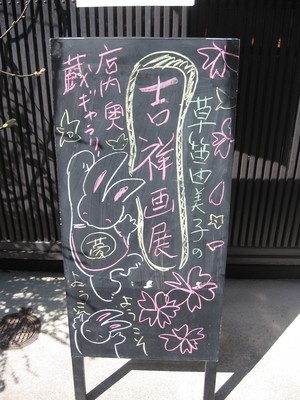 草笛由美子の
吉祥画展
店内奥
蔵ギャラリー
夢
ようこそ
ようこそ